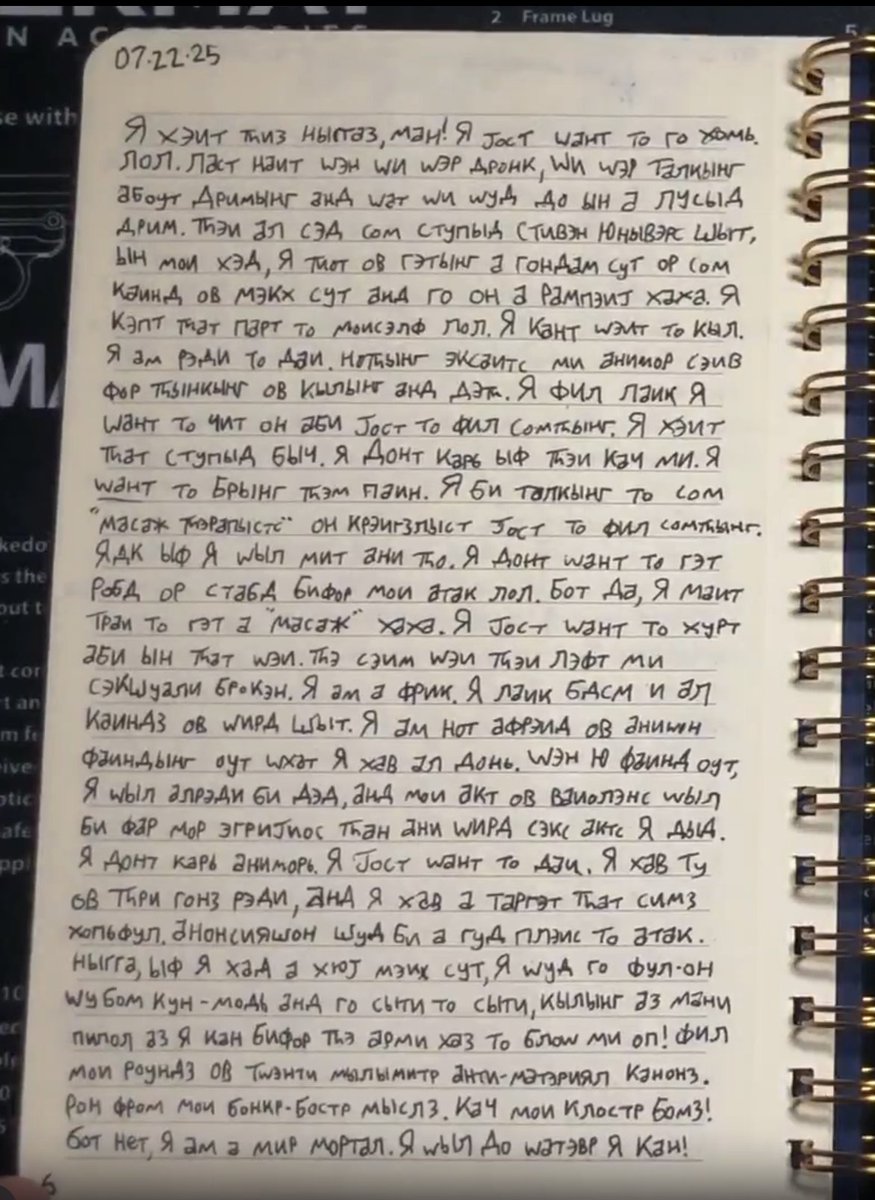 07·22·25
2 Frame Lug
Я хэит тһиз ныггаз, ман! Я јост wант то го хомь.
Лол. Ласт наит wэн wи wэр дронк, wи wэр талкынг
абоут Дримынг анд wат wи wуд до ын а лусыд
дрим. Тһэи ал сэд сом ступыд Стивэн Юнывэрс шыт,
ын мои хэд, Я тһот ов гэтынг а гондам сут ор сом
каинд ов мэкх сут анд го он а рампэиј хаха. Я
кэпт тһат парт то моисэлф лол. Я кант wэит то кыл.
Я ам рэди то даи. Нотһынг эксаитс ми анимор сэив
фор тһынкынг ов кылынг анд дэтһ. Я фил лаик Я
wант то чит он аби јост то фил сомтһынг. Я хэит
тһат ступыд быч. Я донт карь ыф тһэи кач ми. Я
wант то брынг тһэм паин. Я би талкынг то сом
"масаж тһэрапыстс" он крэигзлыст јост то фил сомтһынг.
Ядк ыф Я wыл мит ани тһо. Я донт wант то гэт
робд ор стабд бифор мои атак лол. Бот да, Я маит
траи то гэт а "масаж" хаха. Я јост wант то хурт
аби ын тһат wэи. Тһэ сэим wэи тһэи лэфт ми
сэкшуали брокэн. Я ам а фрик. Я лаик БДСМ и ал
каиндз ов wирд шыт. Я ам нот афрэид ов аниwон
фаиндынг оут wхат Я хав ал донь. Wэн ю фаинд оут,
Я wыл алрэди би дэд, анд мои акт ов ваиолэнс wыл
би фар мор эгриjиос тһан ани wирд сэкс актс Я дыд.
Я донт карь аниморь. Я јост wант то даи. Я хав ту
ов тһри гонз рэди, анд Я хав а таргэт тһат симз
хопьфул. Анонсияшон шуд би а гуд плэис то атак.
Ныгга, ыф Я хад а хюј мэкх сут, Я wуд го фул-он
кун-модь анд го сыти то сыти, кылынг аз мани
пипол аз Я кан бифор тһэ арми хаз то блоw ми оп! Фил
мои роундз ов тwэнти мылымитр анти-матэриял канонз.
Рон фром мои бонкр-бостр мыслз. Кач мои клостр бомз!
Бот нет, Я ам а мир мортал. Я wыл до wатэвр Я кан!